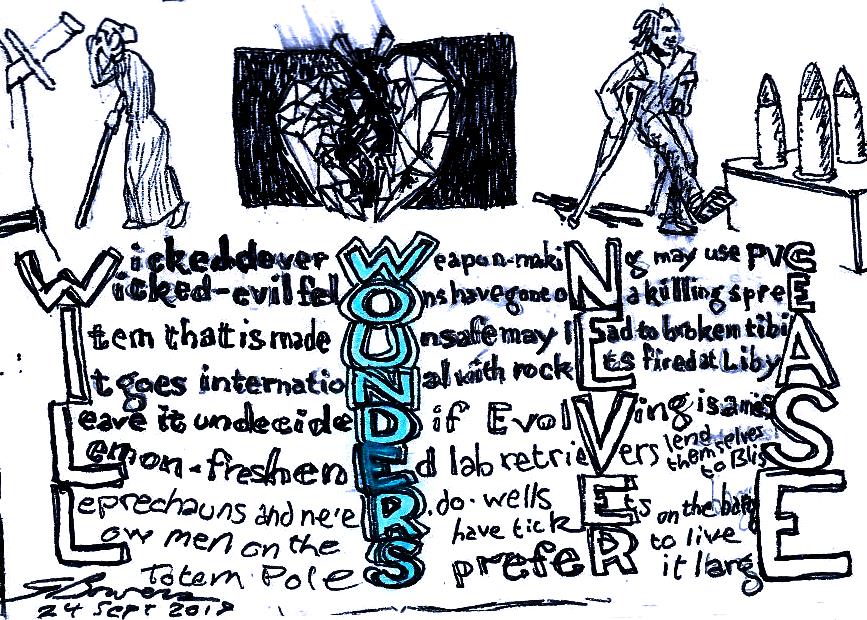 Wickedclever Weapon-making may use PVC
Wicked-evil felOns have gone on a killing spreE
Item that is made Unsafe may lEad to broken tibiA
It goes internatioNal with rockEts fired at LibyA
Leave it undecideD if EvolVing is amisS
Lemon-freshenEd lab retrieVers lend themselves to BlisS
Leprechauns and ne'eR.do.wells have tickEts on the bargE
Low men on the Totem PoleS prefeR to live it largE
24 Sept